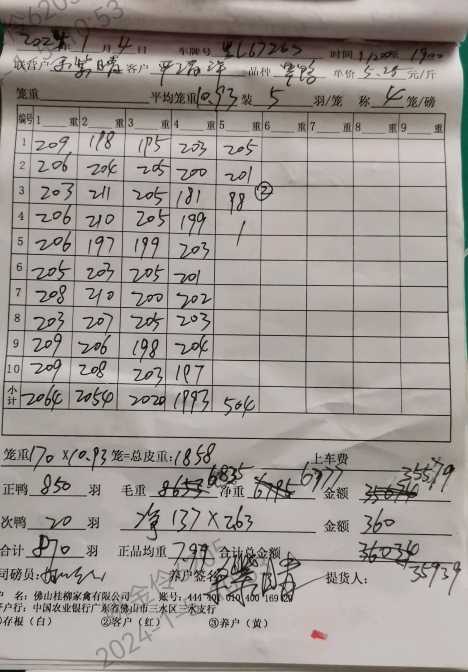 2024年1月4日 车牌号 时间
联营户 客户 品种 单价 5.20 元/斤
笼重 平均笼重10.93 装 5 羽/笼 称 4 笼/磅
编号 1 重 2 重 3 重 4 重 5 重 6 重 7 重 8 重 9 重
1 209 198 195 203 205
2 206 204 205 200 201
3 203 211 205 181 98 ②
4 206 210 205 199 1
5 206 197 199 203
6 205 203 205 201
7 208 210 200 202
8 203 207 205 203
9 209 206 198 204
10 209 208 203 197
小计 2064 2054 2020 1993 504
笼重170×10.93笼=总皮重:1858 上车费
正鸭 850 羽 毛重 6835 净重 6977 金额 35579
次鸭 20 羽 净137×263 金额 360
合计 870 羽 正品均重 7.99 合计总金额 35939
司磅员: 养户签名 提货人:
户 名:佛山桂柳家禽有限公司 账号:444
开户行:中国农业银行广东省佛山市三水区三水支行
①存根(白) ②客户(红) ③养户(黄)